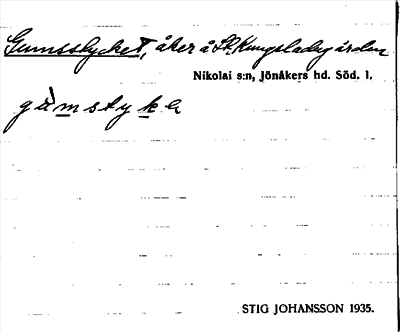 Gumsstycket, åker å St. Kungsladugården
Nikolai s:n, Jönåkers hd. Söd. l.
gu̇mstyke
STIG JOHANSSON 1935.